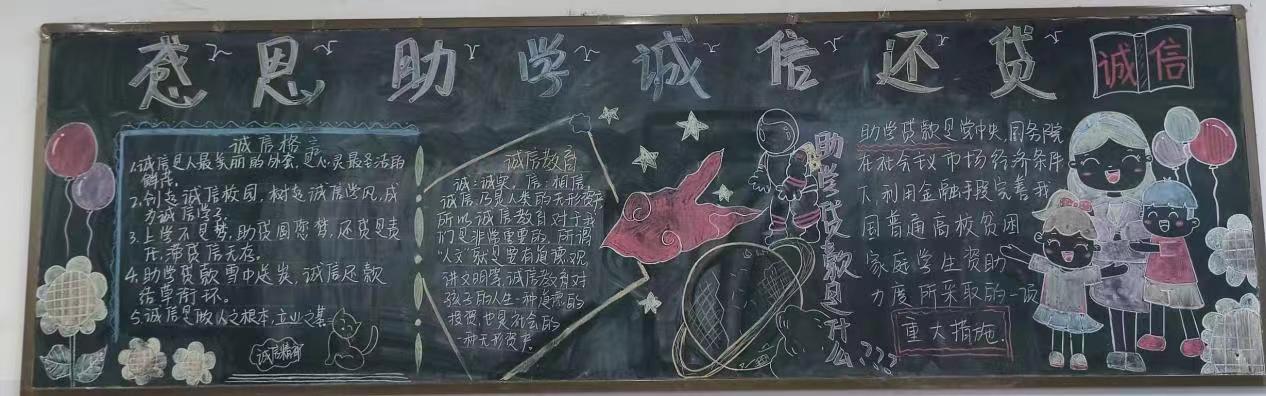 感恩助学诚信还贷
诚信
诚信格言
1.诚信是人最美丽的外套,是心灵最圣洁的
鲜花。
2.创造诚信校园,树起诚信学风,成
为诚信学子。
3.上学不是梦,助贷圆您梦,还贷是责
任,滞贷信无存。
4.助学贷款雪中送炭,诚信还款
结草衔环。
5.诚信是做人之根本,立业之基
诚信教育
诚:诚实,信:植信,
诚信,乃是人类的无形资产
所以诚信教育对于我
们是非常重要的,所谓
“人文”就是要有道德观,
讲文明学,诚信教育对
孩子的人生一种道德的
投资,也是社会的
一种无形资产。
助学贷款是什么???
助学贷款是党中央、国务院
在社会主义市场经济条件
下,利用金融手段完善我
国普通高校贫困
家庭学生资助
力度所采取的一项
重大措施.